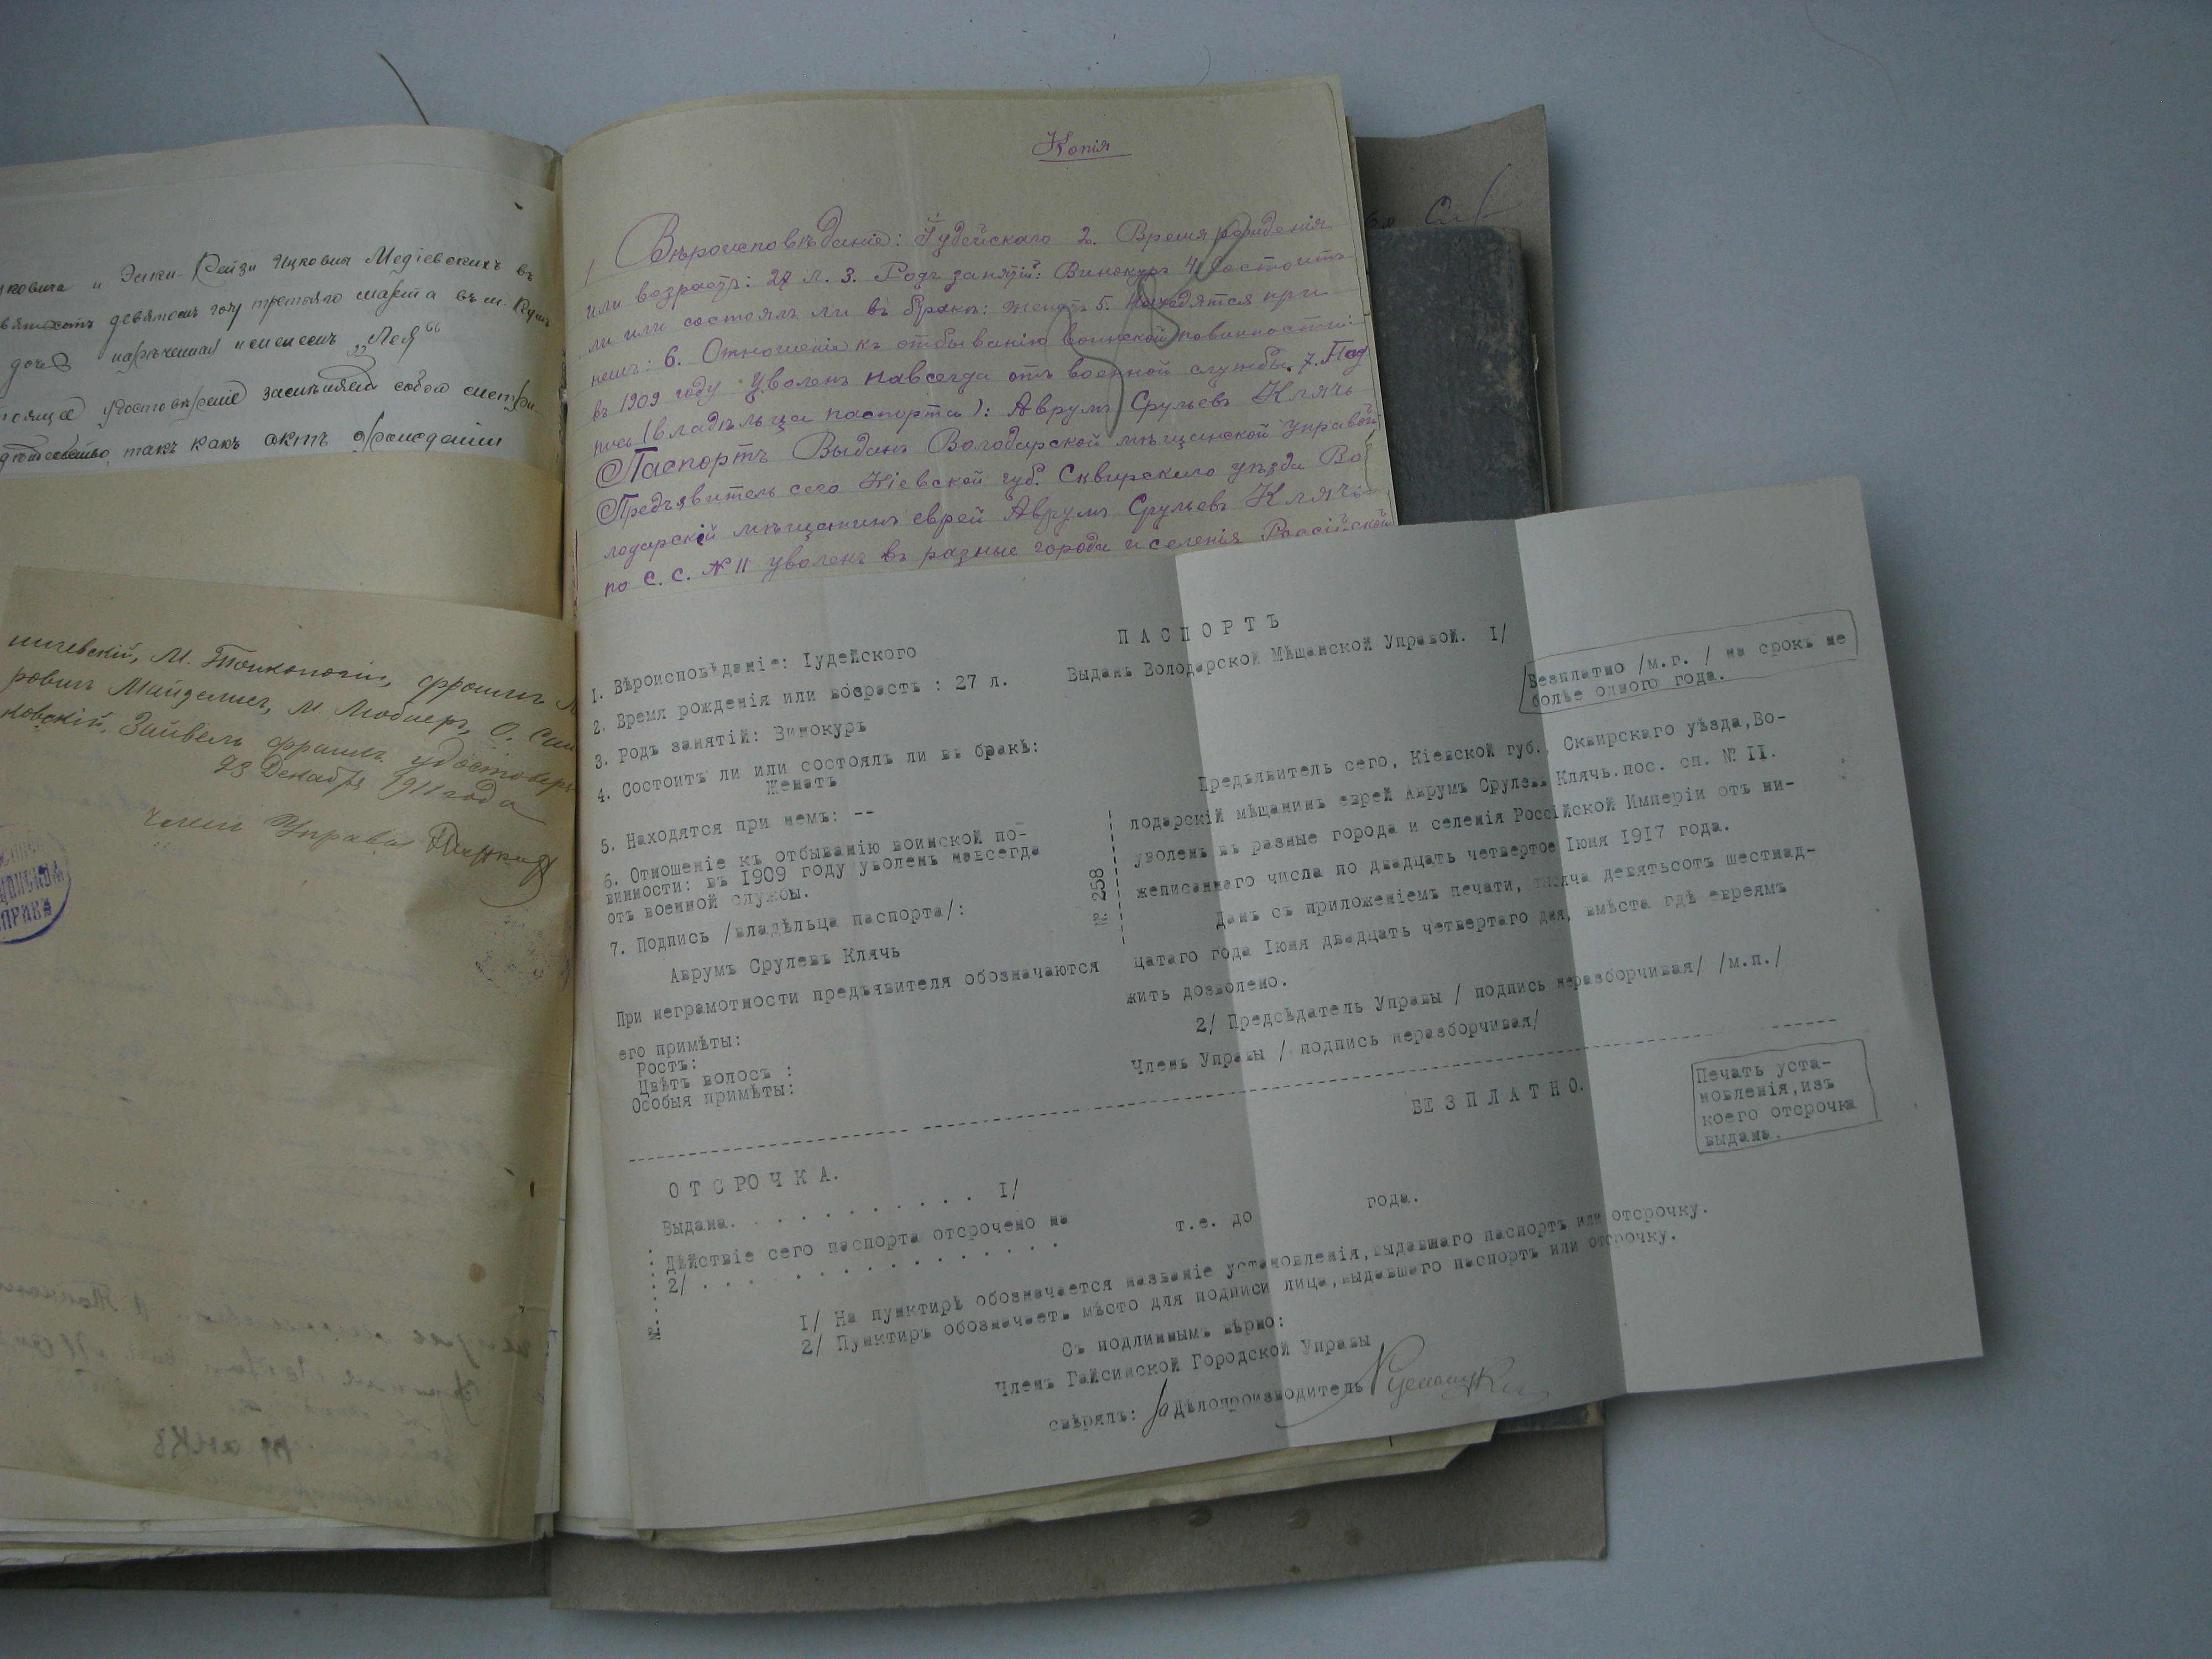 Эстки-Рейзи Ицковна Медіевскихъ въ
девятомъ году третьяго марта въ м.
дочь нареченная именемъ „Лея“
удостовѣреніе замѣняетъ собою метри-
такъ какъ актъ о рожденіи
ровичъ Майделисъ, М. Любперъ, О.
Зайвель удостовѣр
23 Декабря 1911 года
Членъ Управы
Копія
1 Вѣроисповѣданіе: Іудейскаго 2. Время рожденія
или возрастъ: 27 л. 3. Родъ занятій: Винокуръ 4. Состоитъ
ли или состоялъ ли въ бракѣ: Женатъ 5. Находятся при
немъ: 6. Отношеніе къ отбыванію воинской повинности:
въ 1909 году уволенъ навсегда отъ военной службы. 7. Под
пись (владѣльца паспорта): Аврумъ Срулевъ Клячъ
Паспортъ Выданъ Володарской мѣщанской управой
Предъявитель сего Кіевской губ. Сквирскаго уѣзда Во
лодарскій мѣщанинъ еврей Аврумъ Срулевъ Клячъ
по С. С. № 11 уволенъ въ разные города и селенія Россійской
ПАСПОРТЪ
Выданъ Володарской Мѣщанской Управой. I/
Безплатно /м.г. / на срокъ не
болѣе одного года.
I. Вѣроисповѣданіе: Іудейского
2. Время рожденія или возрастъ : 27 л.
3. Родъ занятій: Винокуръ
4. Состоитъ ли или состоялъ ли въ бракѣ:
Женатъ
5. Находятся при немъ: --
6. Отношеніе къ отбыванію воинской по-
винности: въ I909 году уволенъ навсегда
отъ военной службы.
7. Подпись /владѣльца паспорта/:
Аврумъ Срулевъ Клячъ
При неграмотности предъявителя обозначаются
его примѣты:
Ростъ:
Цвѣтъ волосъ :
Особыя примѣты:
№ 258
Предъявитель сего, Кіевской губ., Сквирскаго уѣзда,Во-
лодарскій мѣщанинъ еврей Аврумъ Срулевъ Клячъ.пос. сп. № II.
уволенъ въ разные города и селенія Россійской Имперіи отъ ни-
жеписаннаго числа по двадцать четвертое Іюня I9I7 года.
Данъ съ приложеніемъ печати, тысяча девятьсотъ шестнад-
цатаго года Іюня двадцать четвертаго дня, вмѣста гдѣ евреямъ
жить дозволено.
2/ Предсѣдатель Управы / подпись неразборчивая/ /м.п./
Членъ Управы / подпись неразборчивая/
БЕЗПЛАТНО.
Печать уста-
новленія,изъ
коего отсрочка
выдана.
ОТСРОЧКА.
Выдана. . . . . . . . . . . I/
Дѣйствіе сего паспорта отсрочено на т.е. до года.
2/ . . . . . . . . . . . . . .
№.
I/ На пунктирѣ обозначается названіе установленія,выдавшаго паспортъ или отсрочку.
2/ Пунктиръ обозначаетъ мѣсто для подписи лица,выдавшаго паспортъ или отсрочку.
Съ подлиннымъ вѣрно:
Членъ Гайсинской Городской Управы
свѣрялъ: За Дѣлопроизводитель